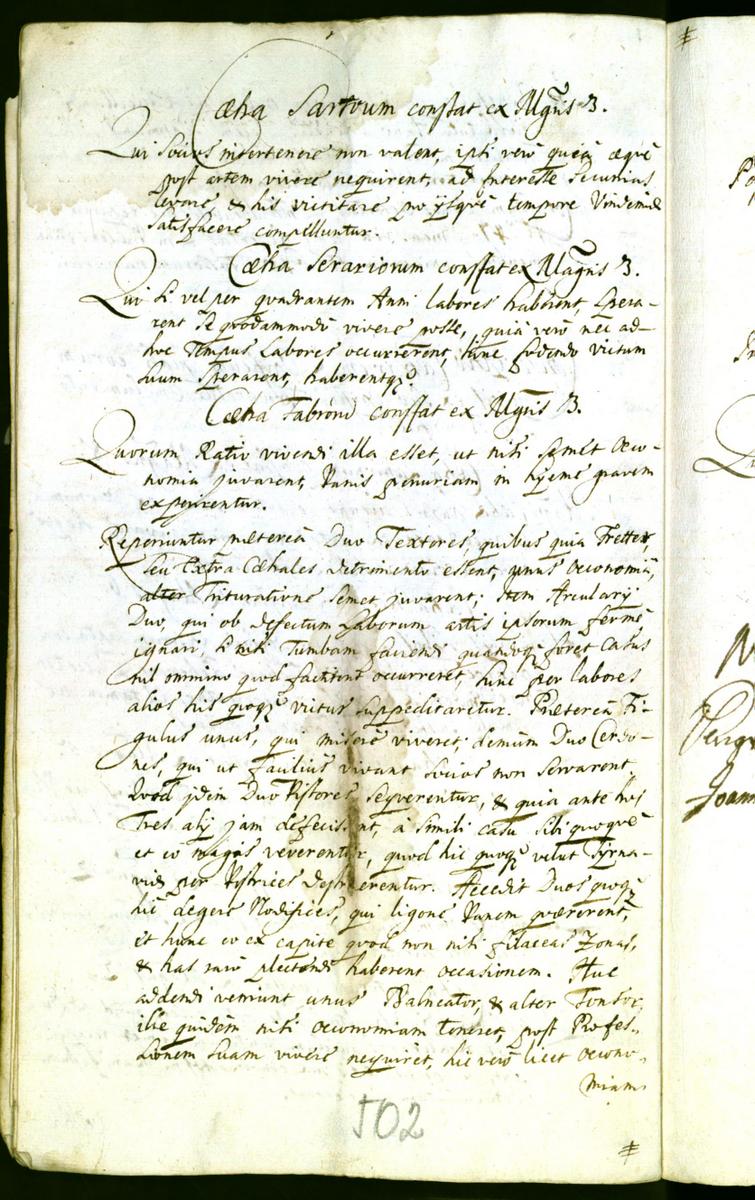 Cæha Sartorum constat ex Mgris 3.
Qui Socios intertenere non valent, ipsi verò quià æquè
post artem vivere nequirent, ad Interesse Secunias
levare & his victitare pro ijsque tempore Vindemiæ
satisfacere compelluntur.
Cæha Serariorum constat ex Magris 3.
Qui si vel per quadrantem Anni labores haberent, spera-
rent se quodammodò vivere posse, quià verò nec ad-
huc Tempus Labores occurrerent, hinc fodendo victum
suum sperarent, haberentq?
Cæha Fabrorū constat ex Mgris 3.
Quorum Ratio vivendi illa esset, ut nisi semet Oeco-
nomia juvarent, Panis penuriam in hyeme gravem
experirentur.
Reperiuntur præterea Duo Textores, quibus quia Fretter,
seu Extra Cæhales detrimento essent, unus Oeconomiâ,
alter Trituratione semet juvarent; Item Arcularij
Duo, qui ob defectum Laborum artis ipsorum fermè
ignari, si nisi Tumbam faciendi quandoq foret Casus
nil omnino quod factitent occurreret, hinc per labores
alios his quoq victus suppeditaretur. Præterea Fi-
gulus unus, qui miserè viveret; demum Duo Cerdo-
nes, qui ut facilius vivant socios non servarent,
Quod jdem Duo Pistores sequerentur, & quia ante hos
Tres alij jam defecissent, à simili casu sibi quoque
et eò magis reverentur, quod hic quoq velut Tyrna-
viæ per Pistrices destruerentur. Accedit Duos quoq
hic degere Nodifices, qui ligone Panem quærerent,
et hunc eo ex capite quod non nisi filaceas Zonas,
& has raro plectendi haberent occasionem. Huc
addendi veniunt unus Balneator, & alter Tonsor,
ille quidem nisi oeconomiam teneret, post Profes-
sionem suam vivere nequiret, hic verò licet oecono-
miam
502